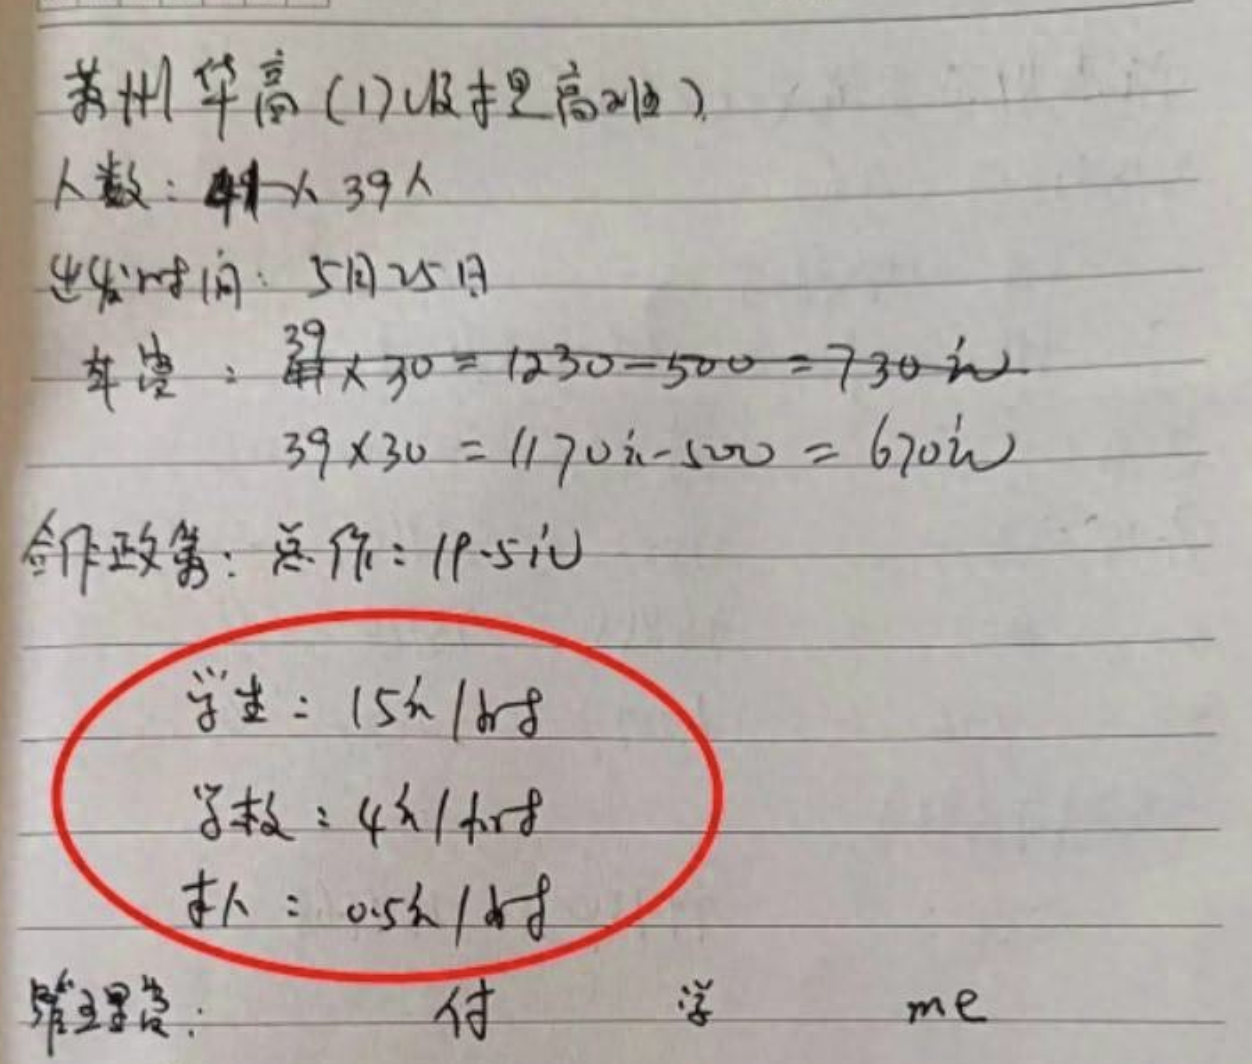 苏州华高(1)
人数：39人
出发时间：5月25日
车费：39×30=1230-500=730元
39×30=1170元-500=670元
合作政策：总价：19.5元
学生：15元/小时
学校：4元/小时
本人：0.5元/小时
管理费： 付 学 me